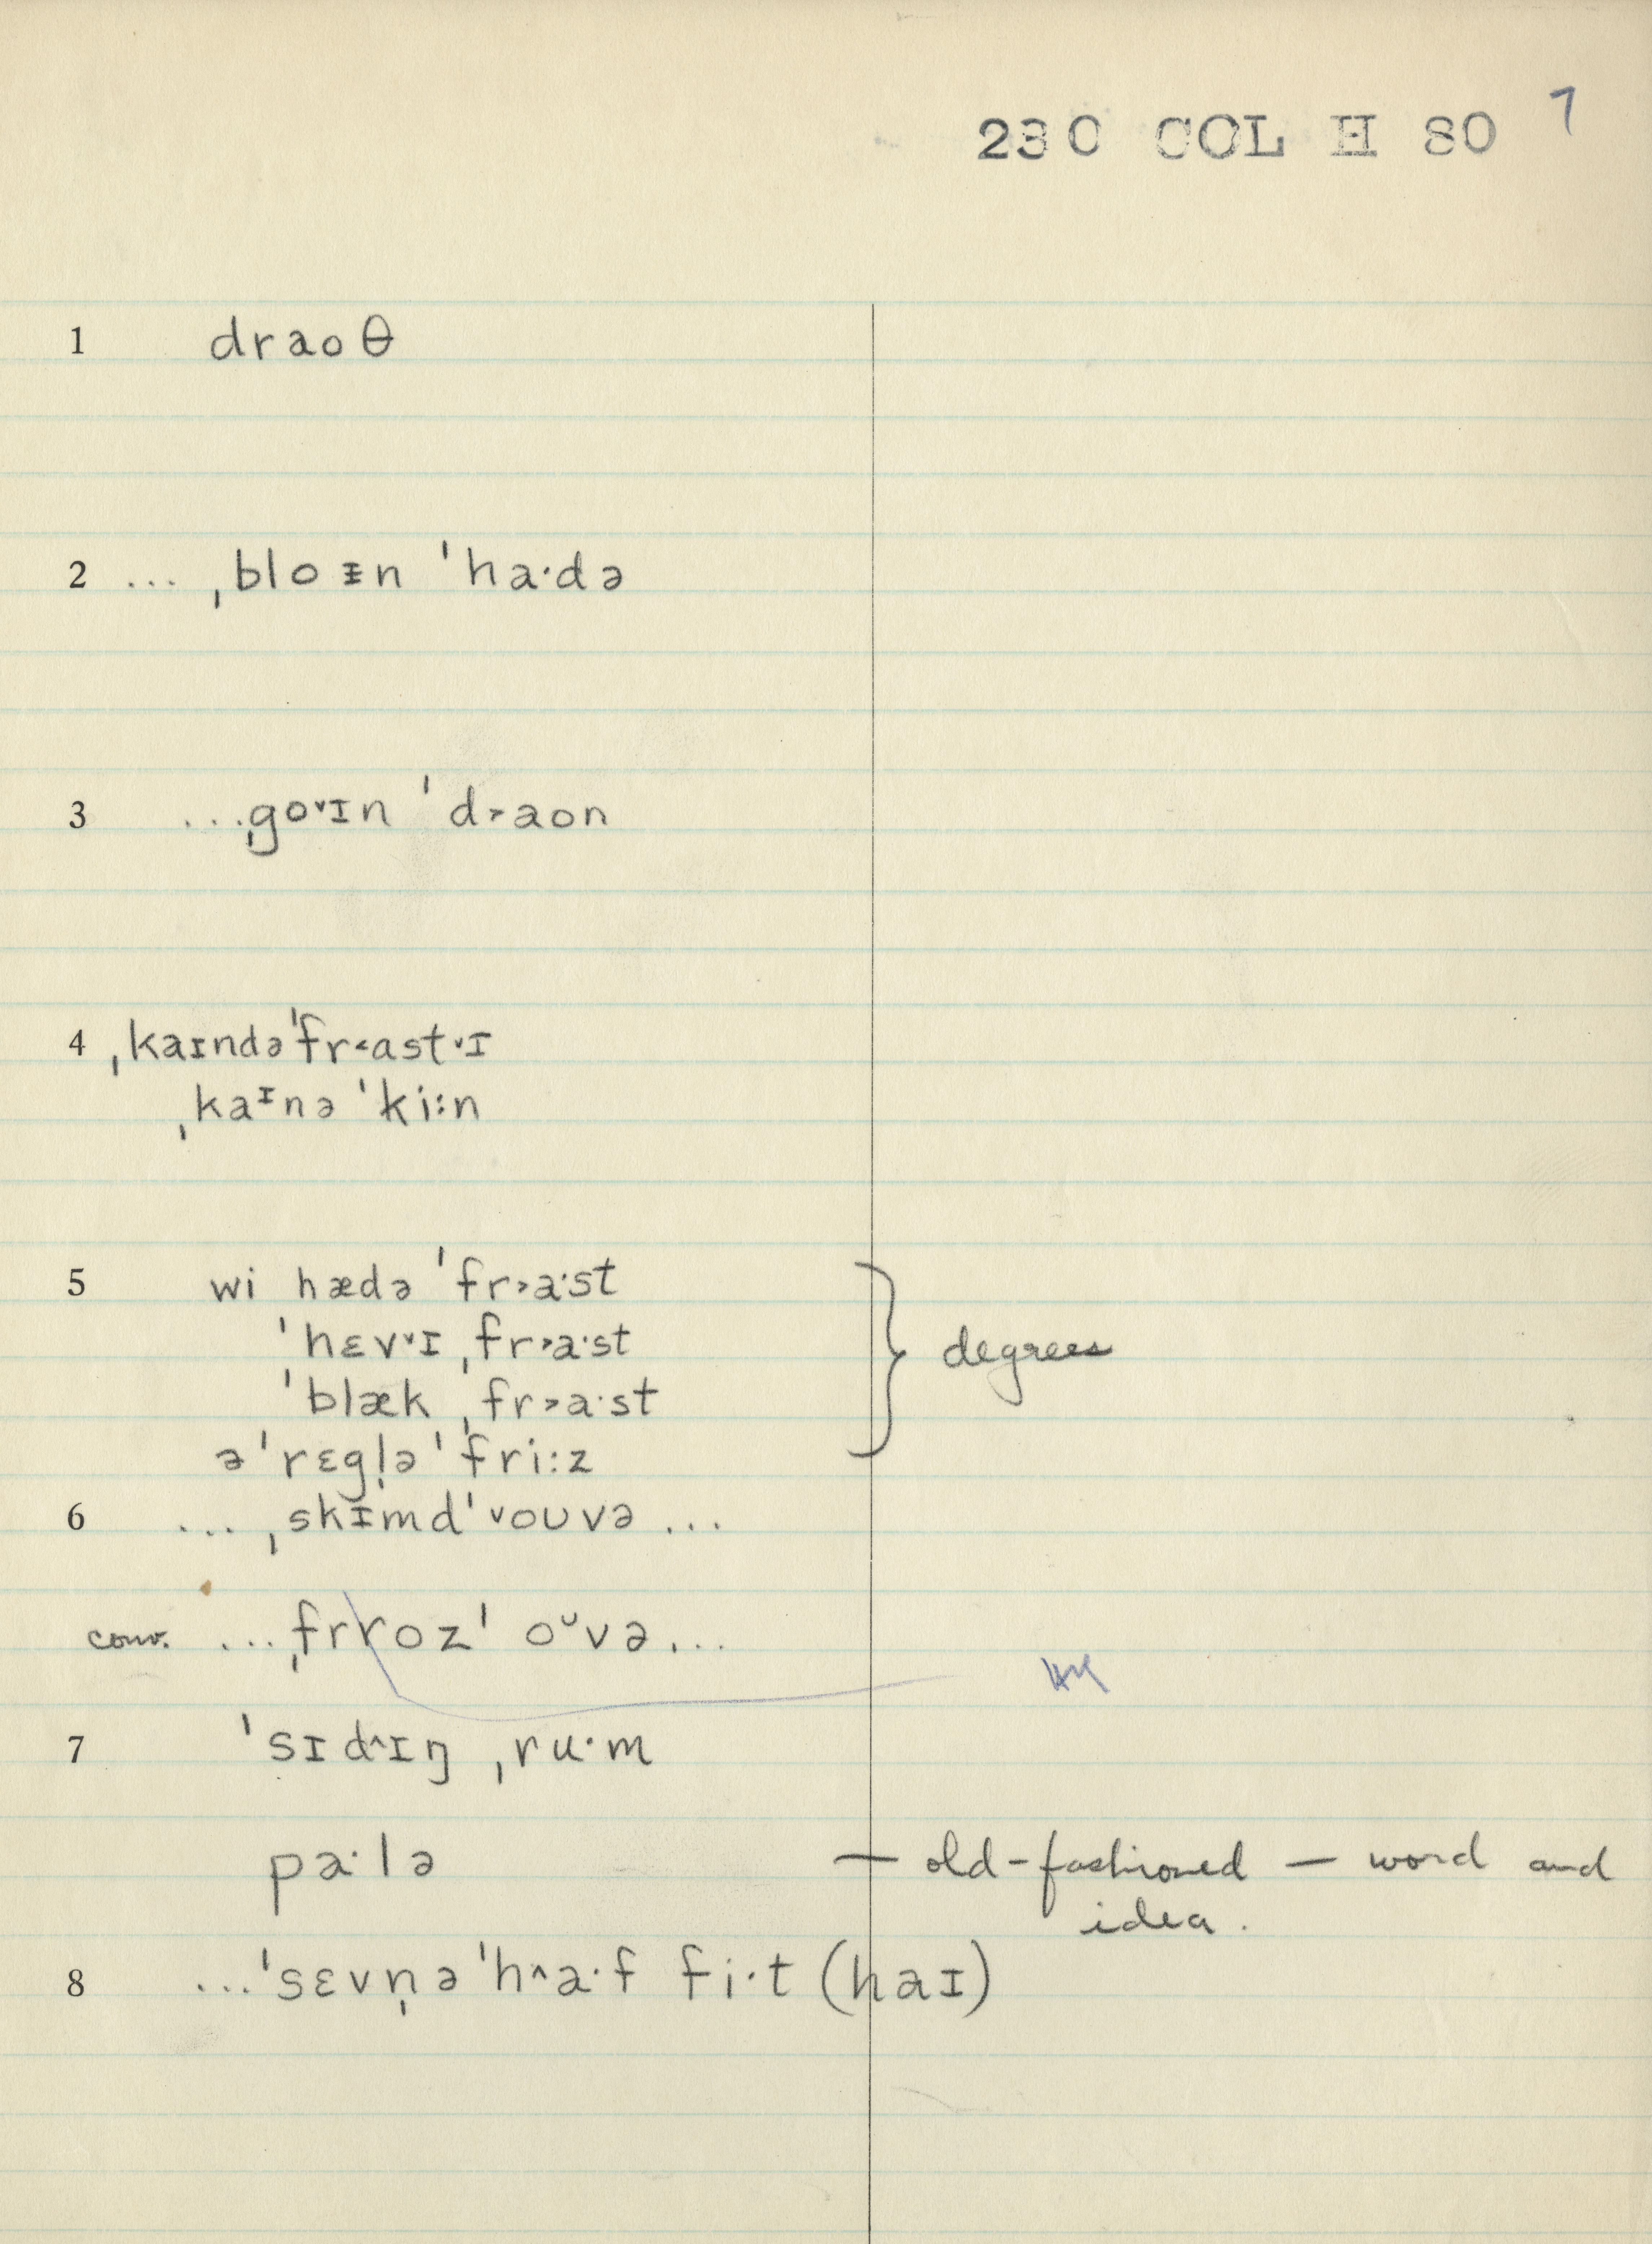 230 COL H 80 7
1 draoθ
2 ... ˌbloᵻn ˈha·də
3 ...ˌgo˅ɪn ˈd˃raon
4 ˌkaɪndəˈfr˂ast˅ɪ
ˌkaᶦnə ˈki:n
5 wi hædə ˈfr˃a·st
ˈhɛv˅ɪ ˌfr˃a·st
ˈblæk ˌfr˃a·st
ə ˈrɛgl̩ə ˈfri:z
degrees
6 ... ˌskᵻmd ˈ˅oʊvə ...
conv. ...ˌfrroz ˈ oᶷvə...
7 ˈsɪd˄ɪŋ ˌru·m
pa·lə — old-fashioned — word and
idea.
8 ...ˈsɛvn̩ə ˈh˄a·f fi·t (haɪ)